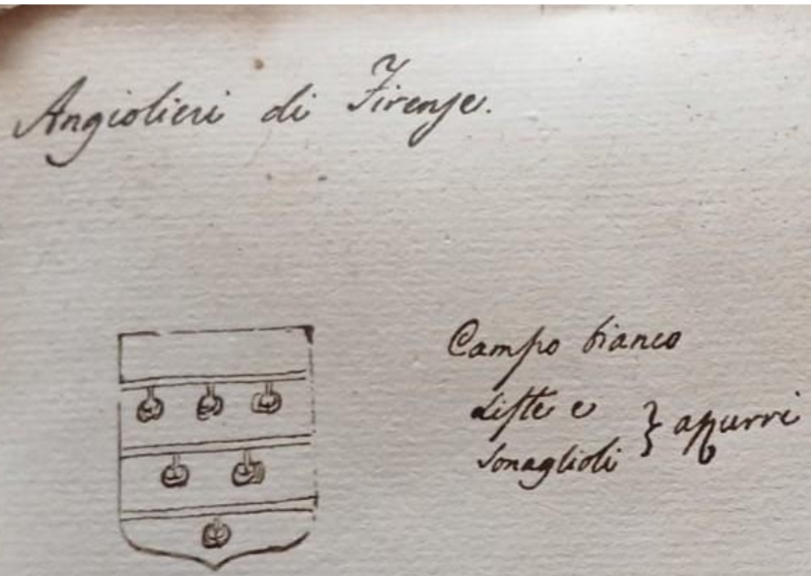 Angiolieri di Firenze.
Campo bianco
Liste e
sonaglioli } azzurri